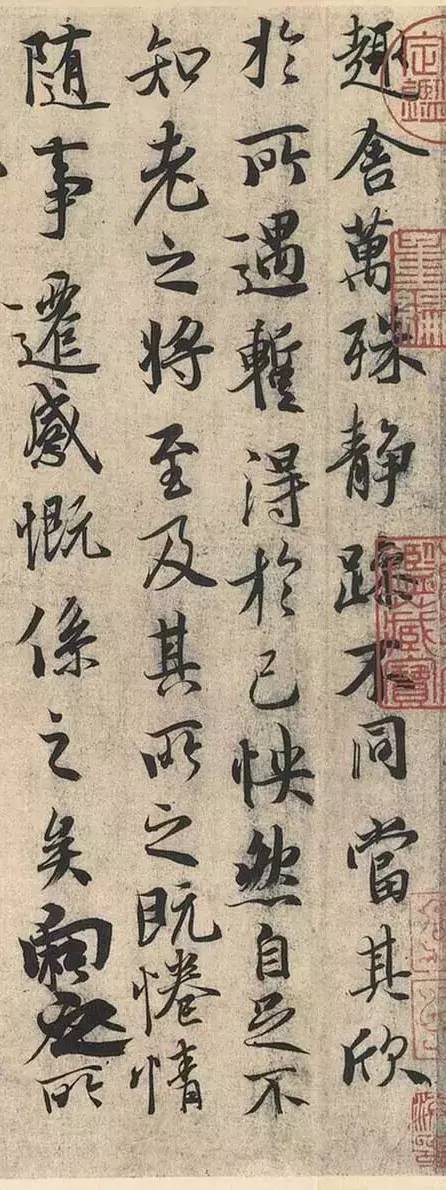 趣舍萬殊静躁不同當其欣
於所遇蹔得於己怏然自足不
知老之將至及其所之既惓情
隨事遷感慨係之矣向之所
定鑑
重編
鑑藏寶